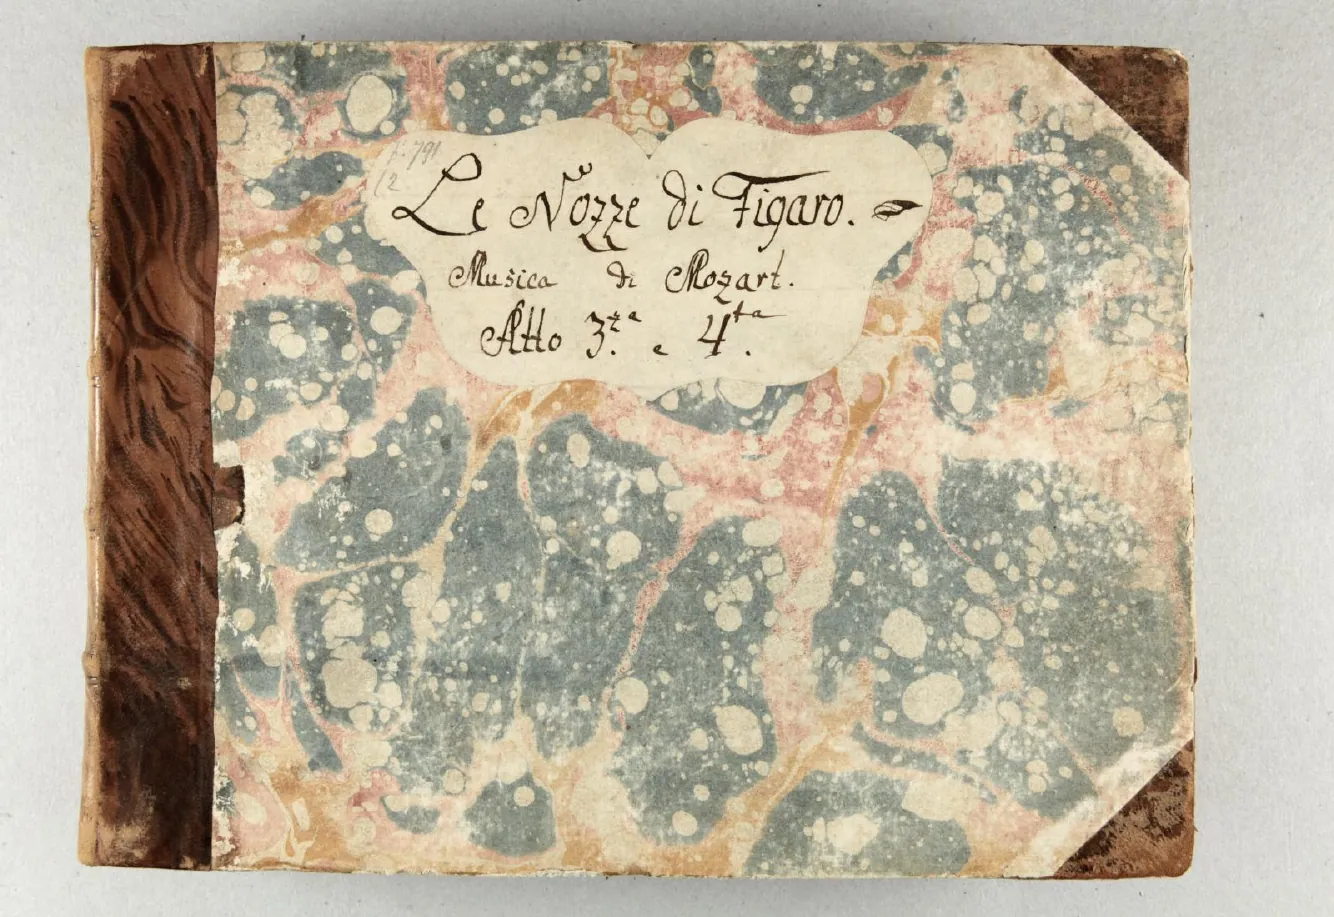 791
12
Le Nozze di Figaro.
Musica di Mozart.
Atto 3.za e 4.ta